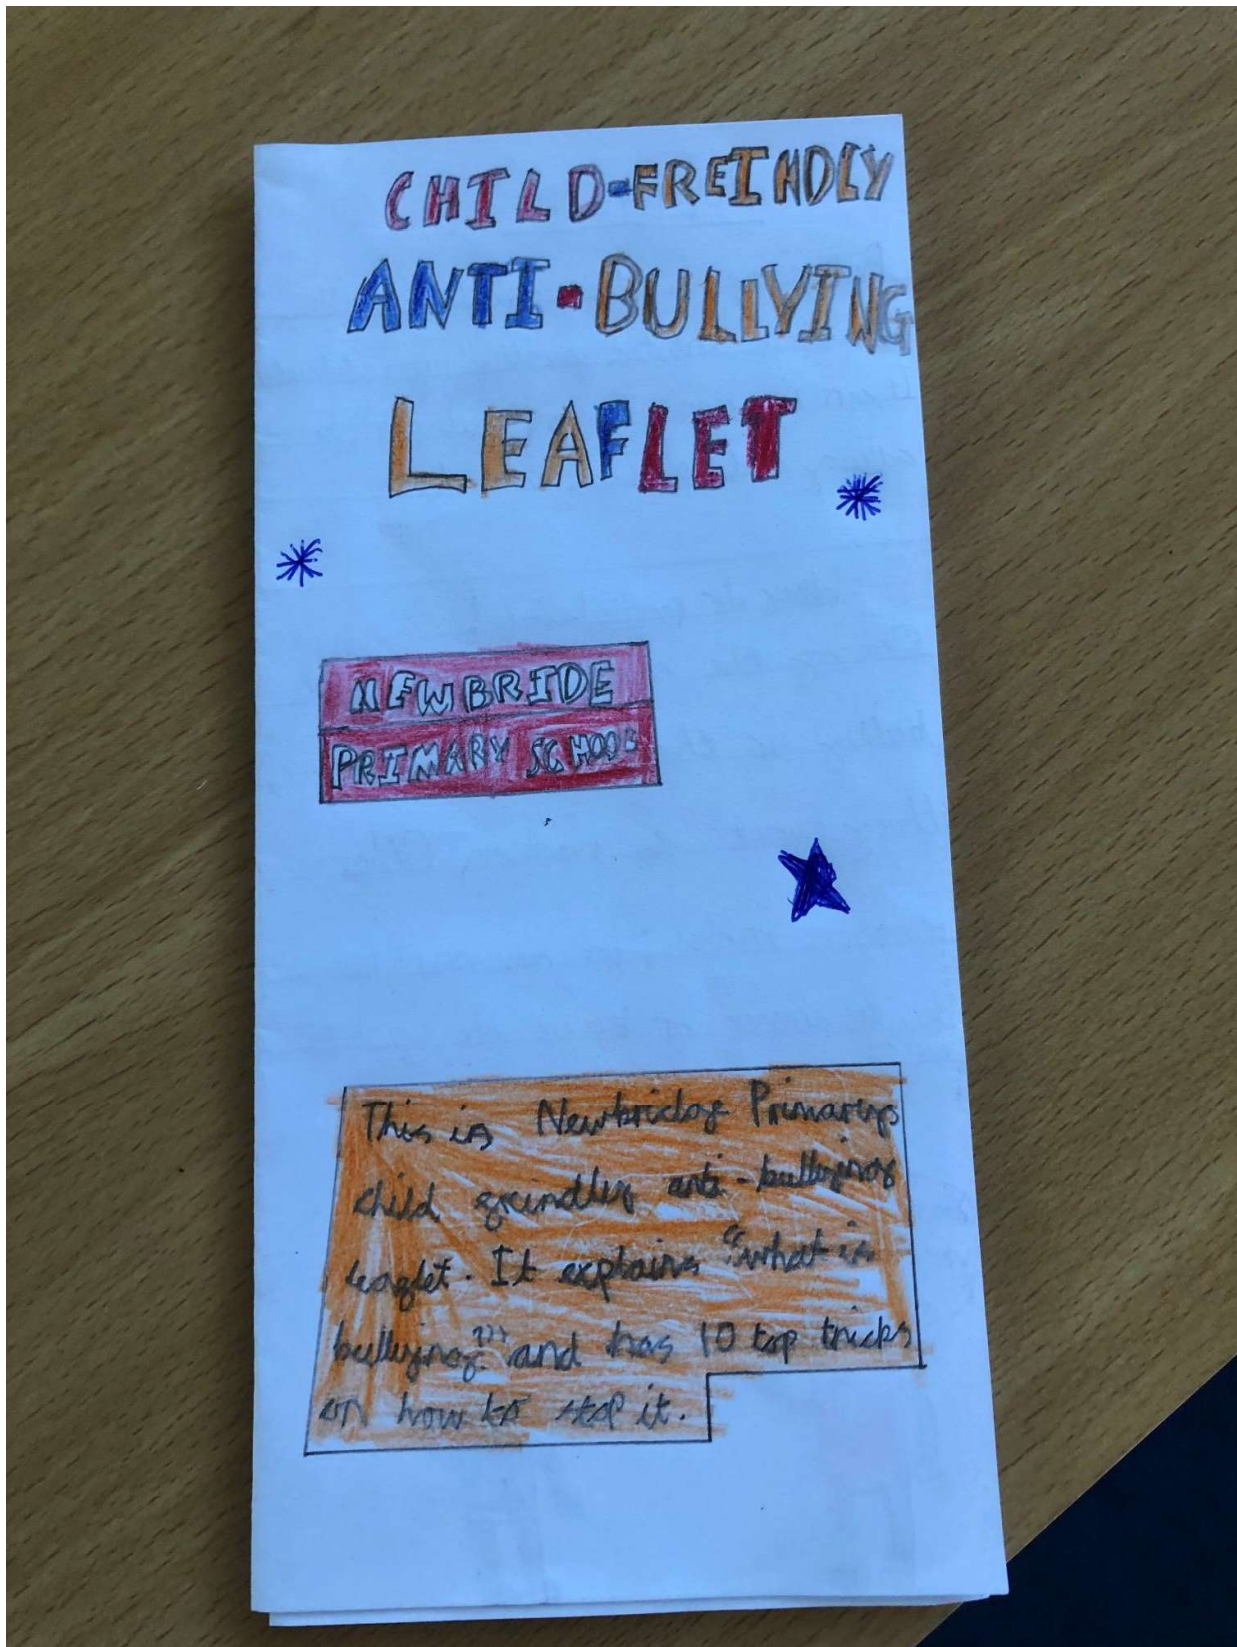 CHILD-FREINDLY
ANTI-BULLYING
LEAFLET
NEWBRIDE
PRIMARY SCHOOL
This is Newbridge Primarys
child freindly anti-bullying
leaflet. It explains "what is
bullying?" and has 10 top tricks
on how to stop it.